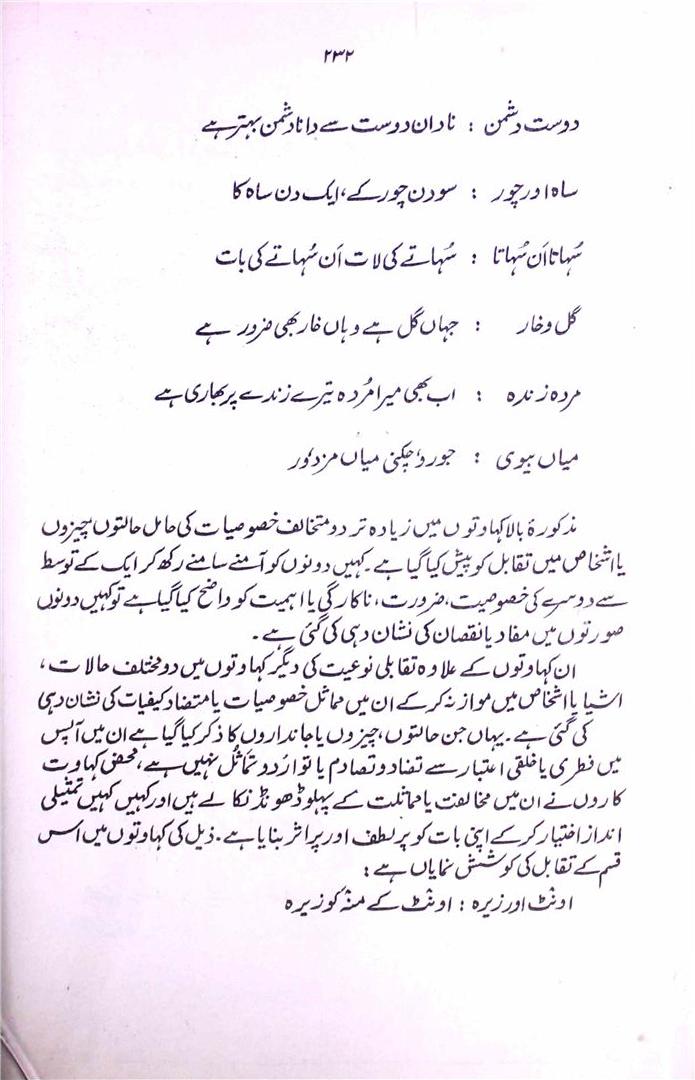 ۲۳۲
دوست دشمن : نادان دوست سے دانا دشمن بہتر ہے
ساہ اور چور : سو دن چور کے، ایک دن ساہ کا
سُہاتا اَن سُہاتا : سُہاتے کی لات اَن سُہاتے کی بات
گل و خار : جہاں گل ہے وہاں خار بھی ضرور ہے
مردہ زندہ : اب بھی میرا مُردہ تیرے زندے پر بھاری ہے
میاں بیوی : جورو چکنی میاں مزدور
مذکورۂ بالا کہاوتوں میں زیادہ تر دو متخالف خصوصیات کی حامل حالتوں، چیزوں
یا اشخاص میں تقابل کو پیش کیا گیا ہے۔ کہیں دونوں کو آمنے سامنے رکھ کر ایک کے توسط
سے دوسرے کی خصوصیت، ضرورت، ناکارگی یا اہمیت کو واضح کیا گیا ہے تو کہیں دونوں
صورتوں میں مفاد یا نقصان کی نشان دہی کی گئی ہے۔
ان کہاوتوں کے علاوہ تقابلی نوعیت کی دیگر کہاوتوں میں دو مختلف حالات،
اشیا یا اشخاص میں موازنہ کر کے ان میں مماثل خصوصیات یا متضاد کیفیات کی نشان دہی
کی گئی ہے۔ یہاں جن حالتوں، چیزوں یا جانداروں کا ذکر کیا گیا ہے ان میں آپس
میں فطری یا خلقی اعتبار سے تضاد و تصادم یا توارُد و تماثُل نہیں ہے، محض کہاوت
کاروں نے ان میں مخالفت یا مماثلت کے پہلو ڈھونڈ نکالے ہیں اور کہیں کہیں تمثیلی
انداز اختیار کر کے اپنی بات کو پر لطف اور پر اثر بنایا ہے۔ ذیل کی کہاوتوں میں اس
قسم کے تقابل کی کوشش نمایاں ہے:
اونٹ اور زیرہ : اونٹ کے منہ کو زیرہ